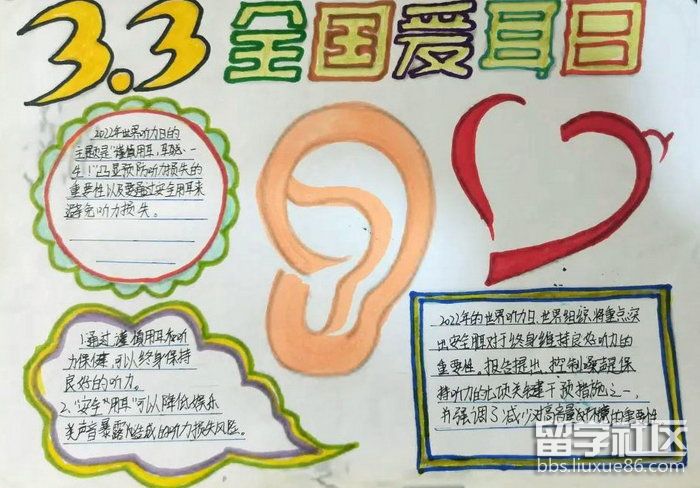 3.3 全国爱耳日
2022年世界听力日的
主题是"谨慎用耳,享听一
生!"凸显预防听力损失的
重要性以及要通过安全用耳来
避免听力损失。
1.通过谨慎用耳和听
力保健,可以终身保持
良好的听力。
2."安全"用耳"可以降低娱乐
类声音暴露所造成的听力损失风险。
2022年的世界听力日,世界组织将重点突
出安全用耳对于终身维持良好听力的
重要性。报告提出,控制噪声是保
持听力的七项关键干预措施之一,
并强调了减少对高音量的重要性
留学社区
bbs.liuxue86.com